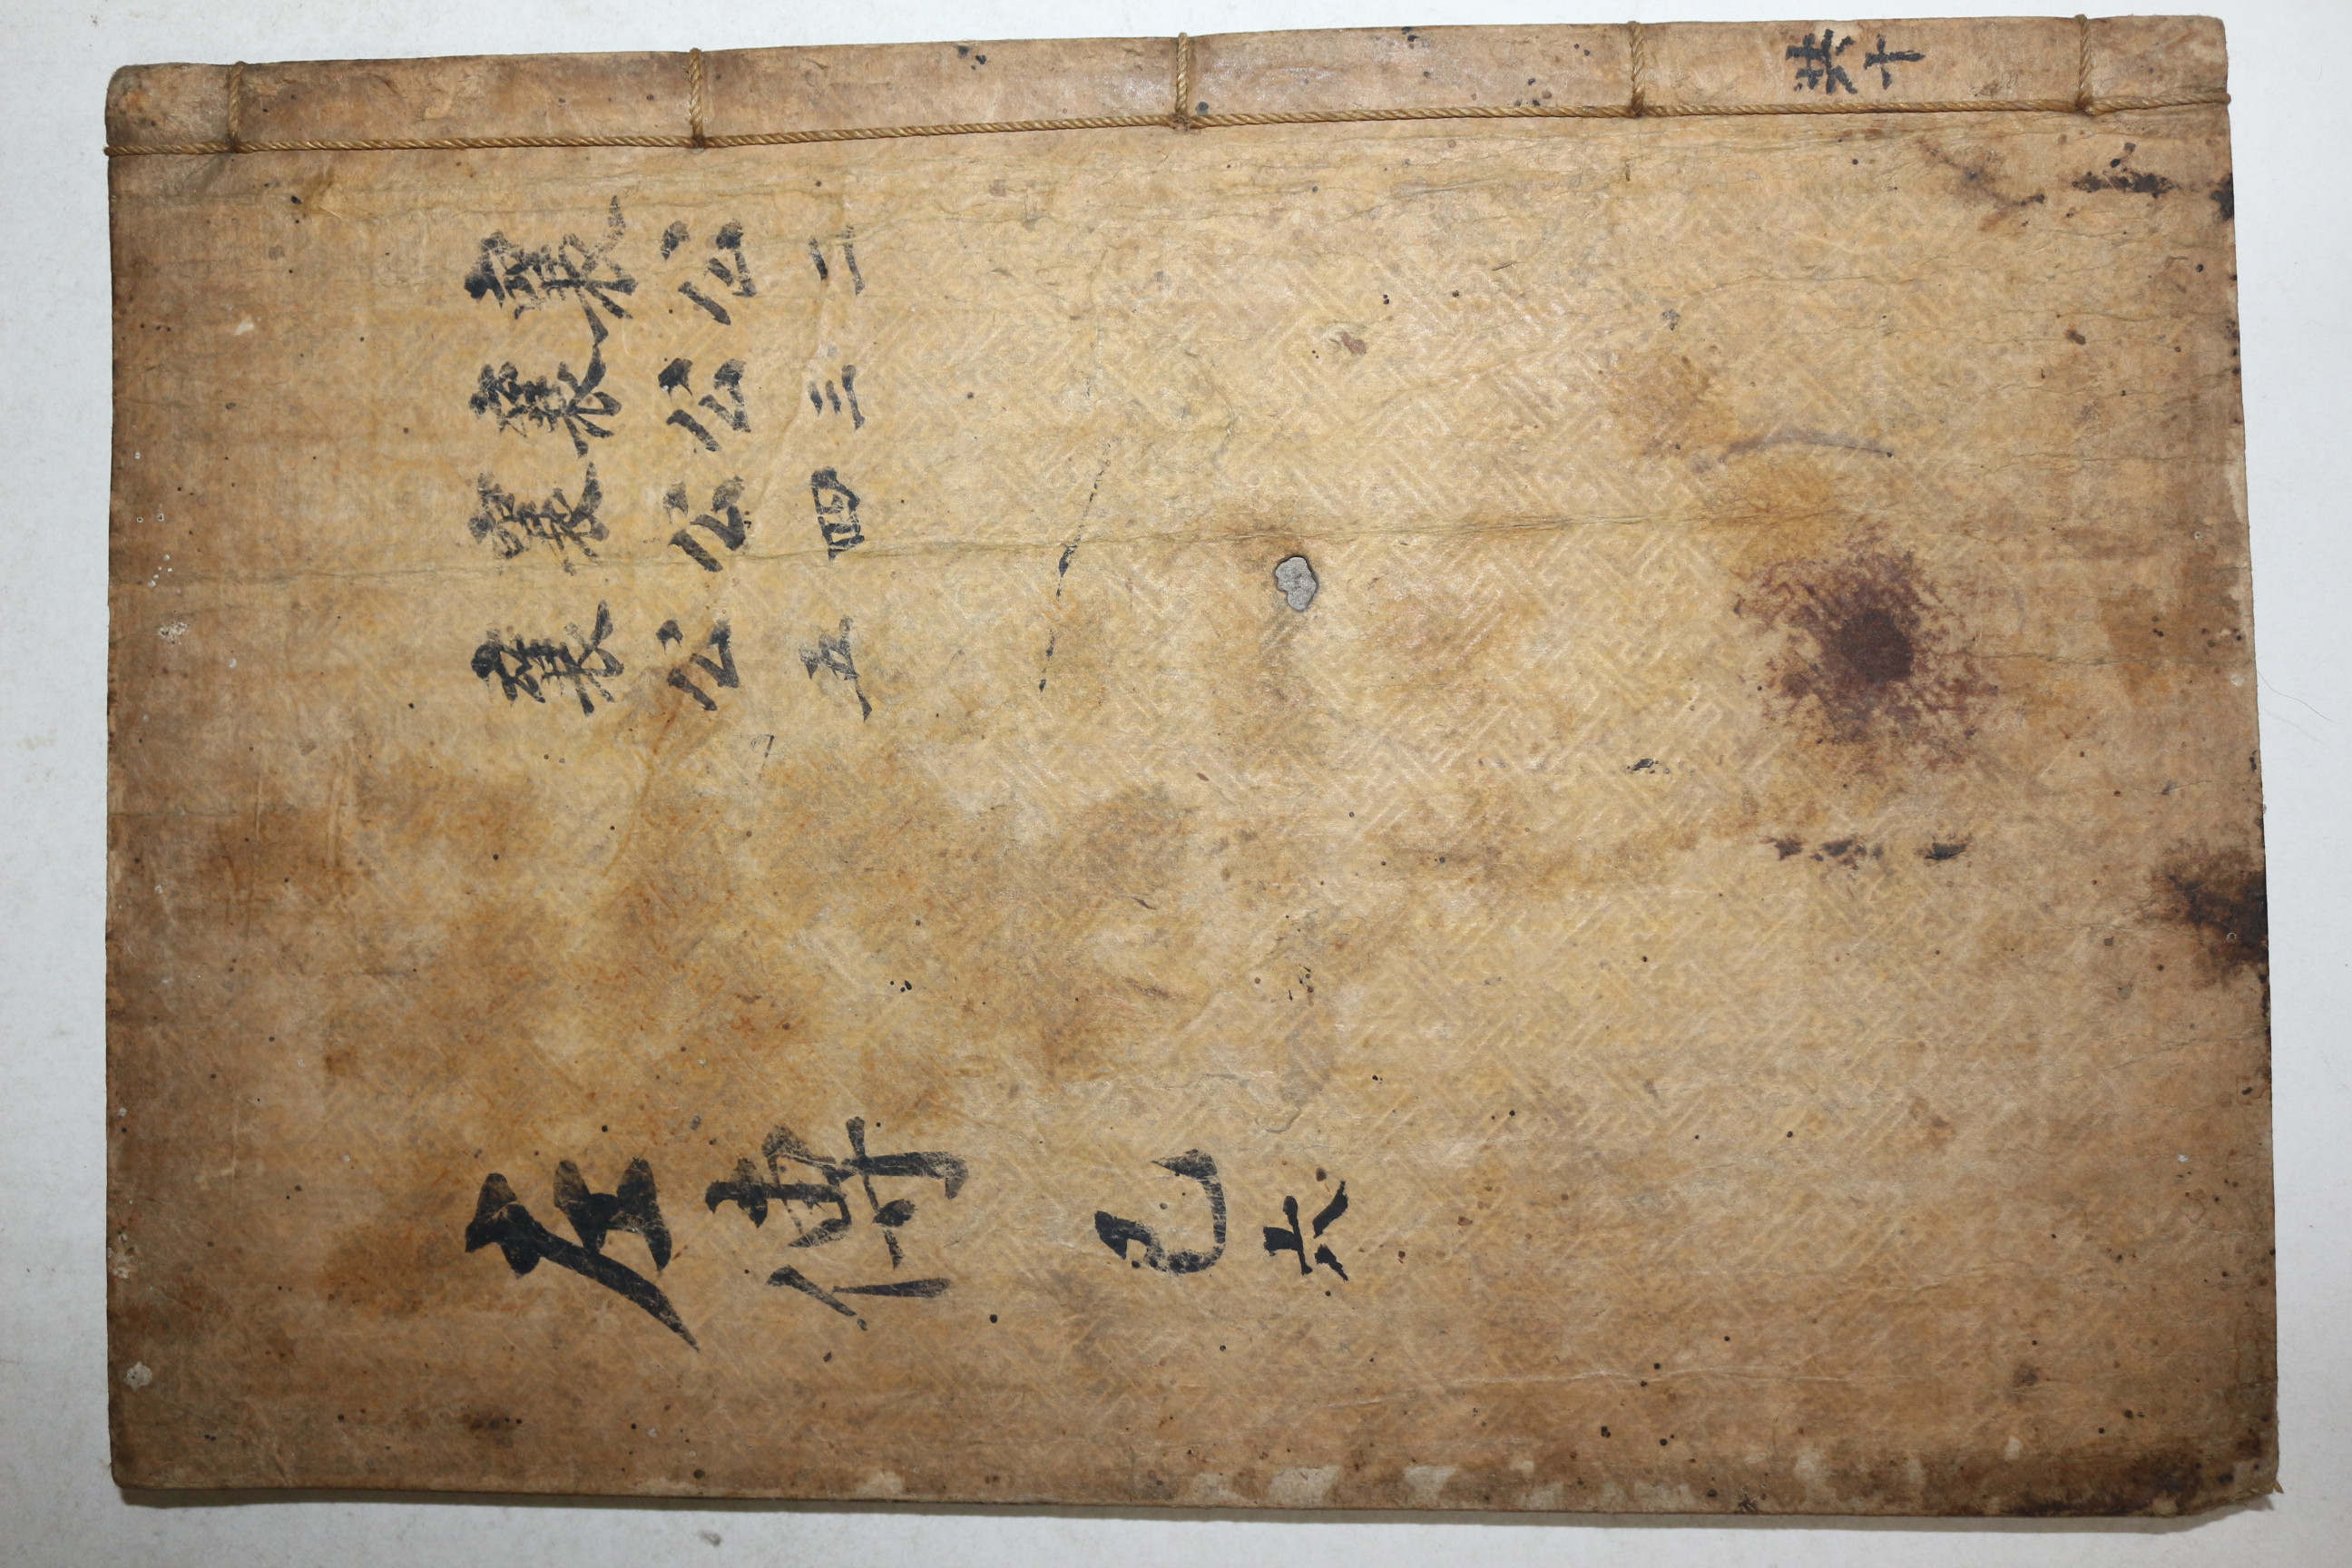 共十
襄公二
襄公三
襄公四
襄公五
左傳 己 六